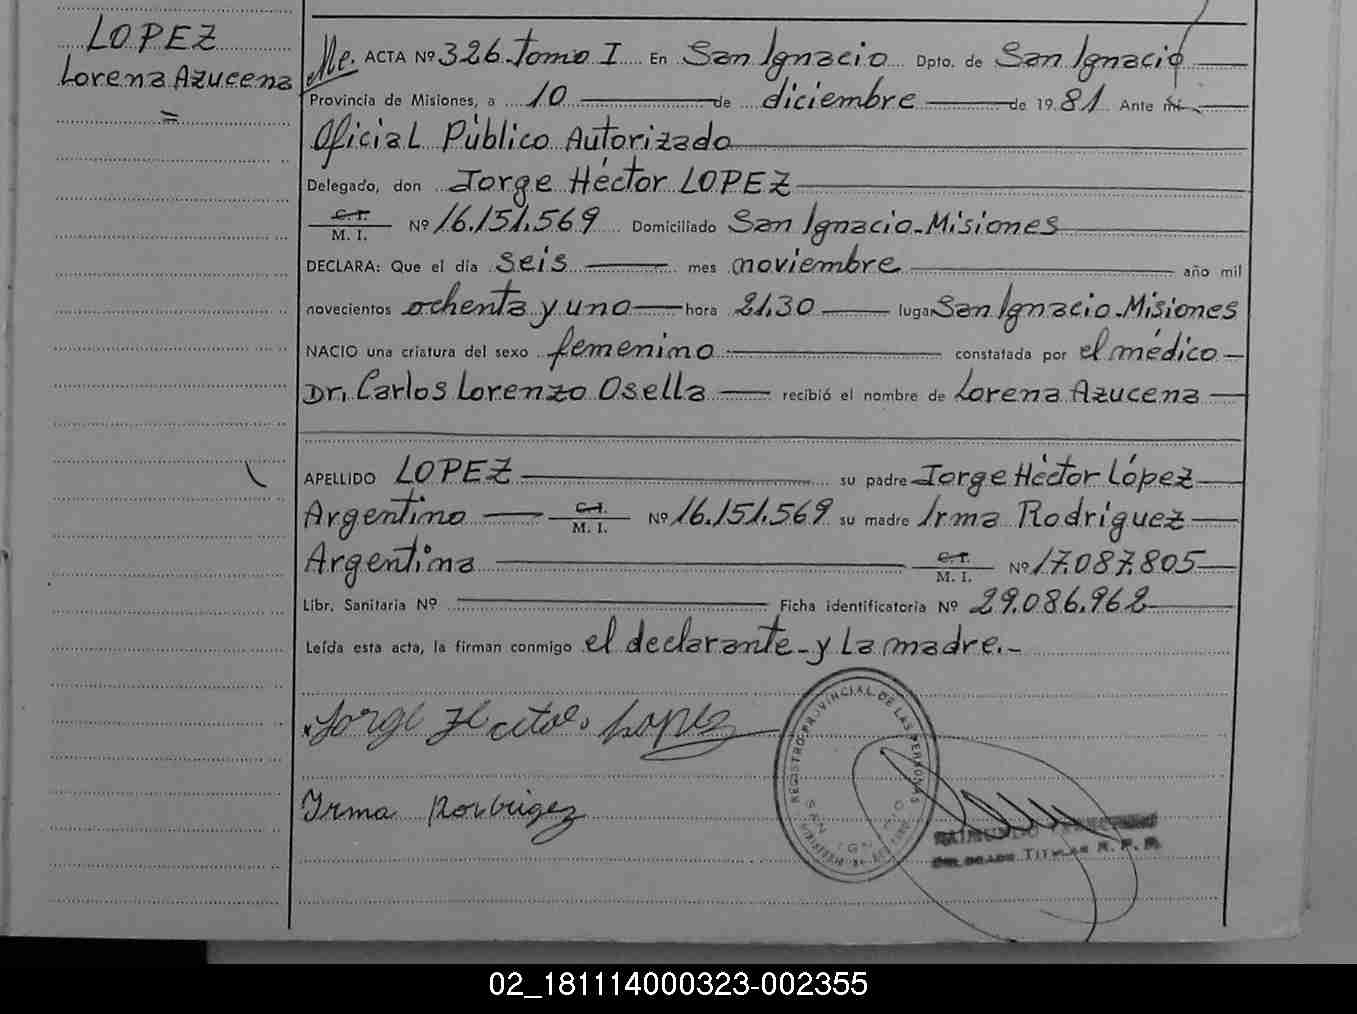 LOPEZ
Lorena Azucena
=
Me. ACTA Nº 326 Tomo I En San Ignacio Dpto. de San Ignacio
Provincia de Misiones, a 10 de diciembre de 1981 Ante mí
Oficial Público Autorizado
Delegado, don Jorge Héctor LOPEZ
C. I.
M. I. Nº 16.151.569 Domiciliado San Ignacio-Misiones
DECLARA: Que el día seis mes noviembre año mil
novecientos ochenta y uno hora 21,30 lugar San Ignacio-Misiones
NACIO una criatura del sexo femenino constatada por el médico
Dr. Carlos Lorenzo Osella recibió el nombre de Lorena Azucena
APELLIDO LOPEZ su padre Jorge Héctor López
Argentino C. I. M. I. Nº 16.151.569 su madre Irma Rodriguez
Argentina C. I. M. I. Nº 17.087.805
Libr. Sanitaria Nº Ficha identificatoria Nº 29.086.962
Leída esta acta, la firman conmigo el declarante - y la madre.-
Jorge Hector Lopez
Irma Rodrigez
REGISTRO PROVINCIAL DE LAS PERSONAS
SAN IGNACIO
MISIONES
RAIMUNDO
DELEGADO TITULAR R. P. P.
02_181114000323-002355